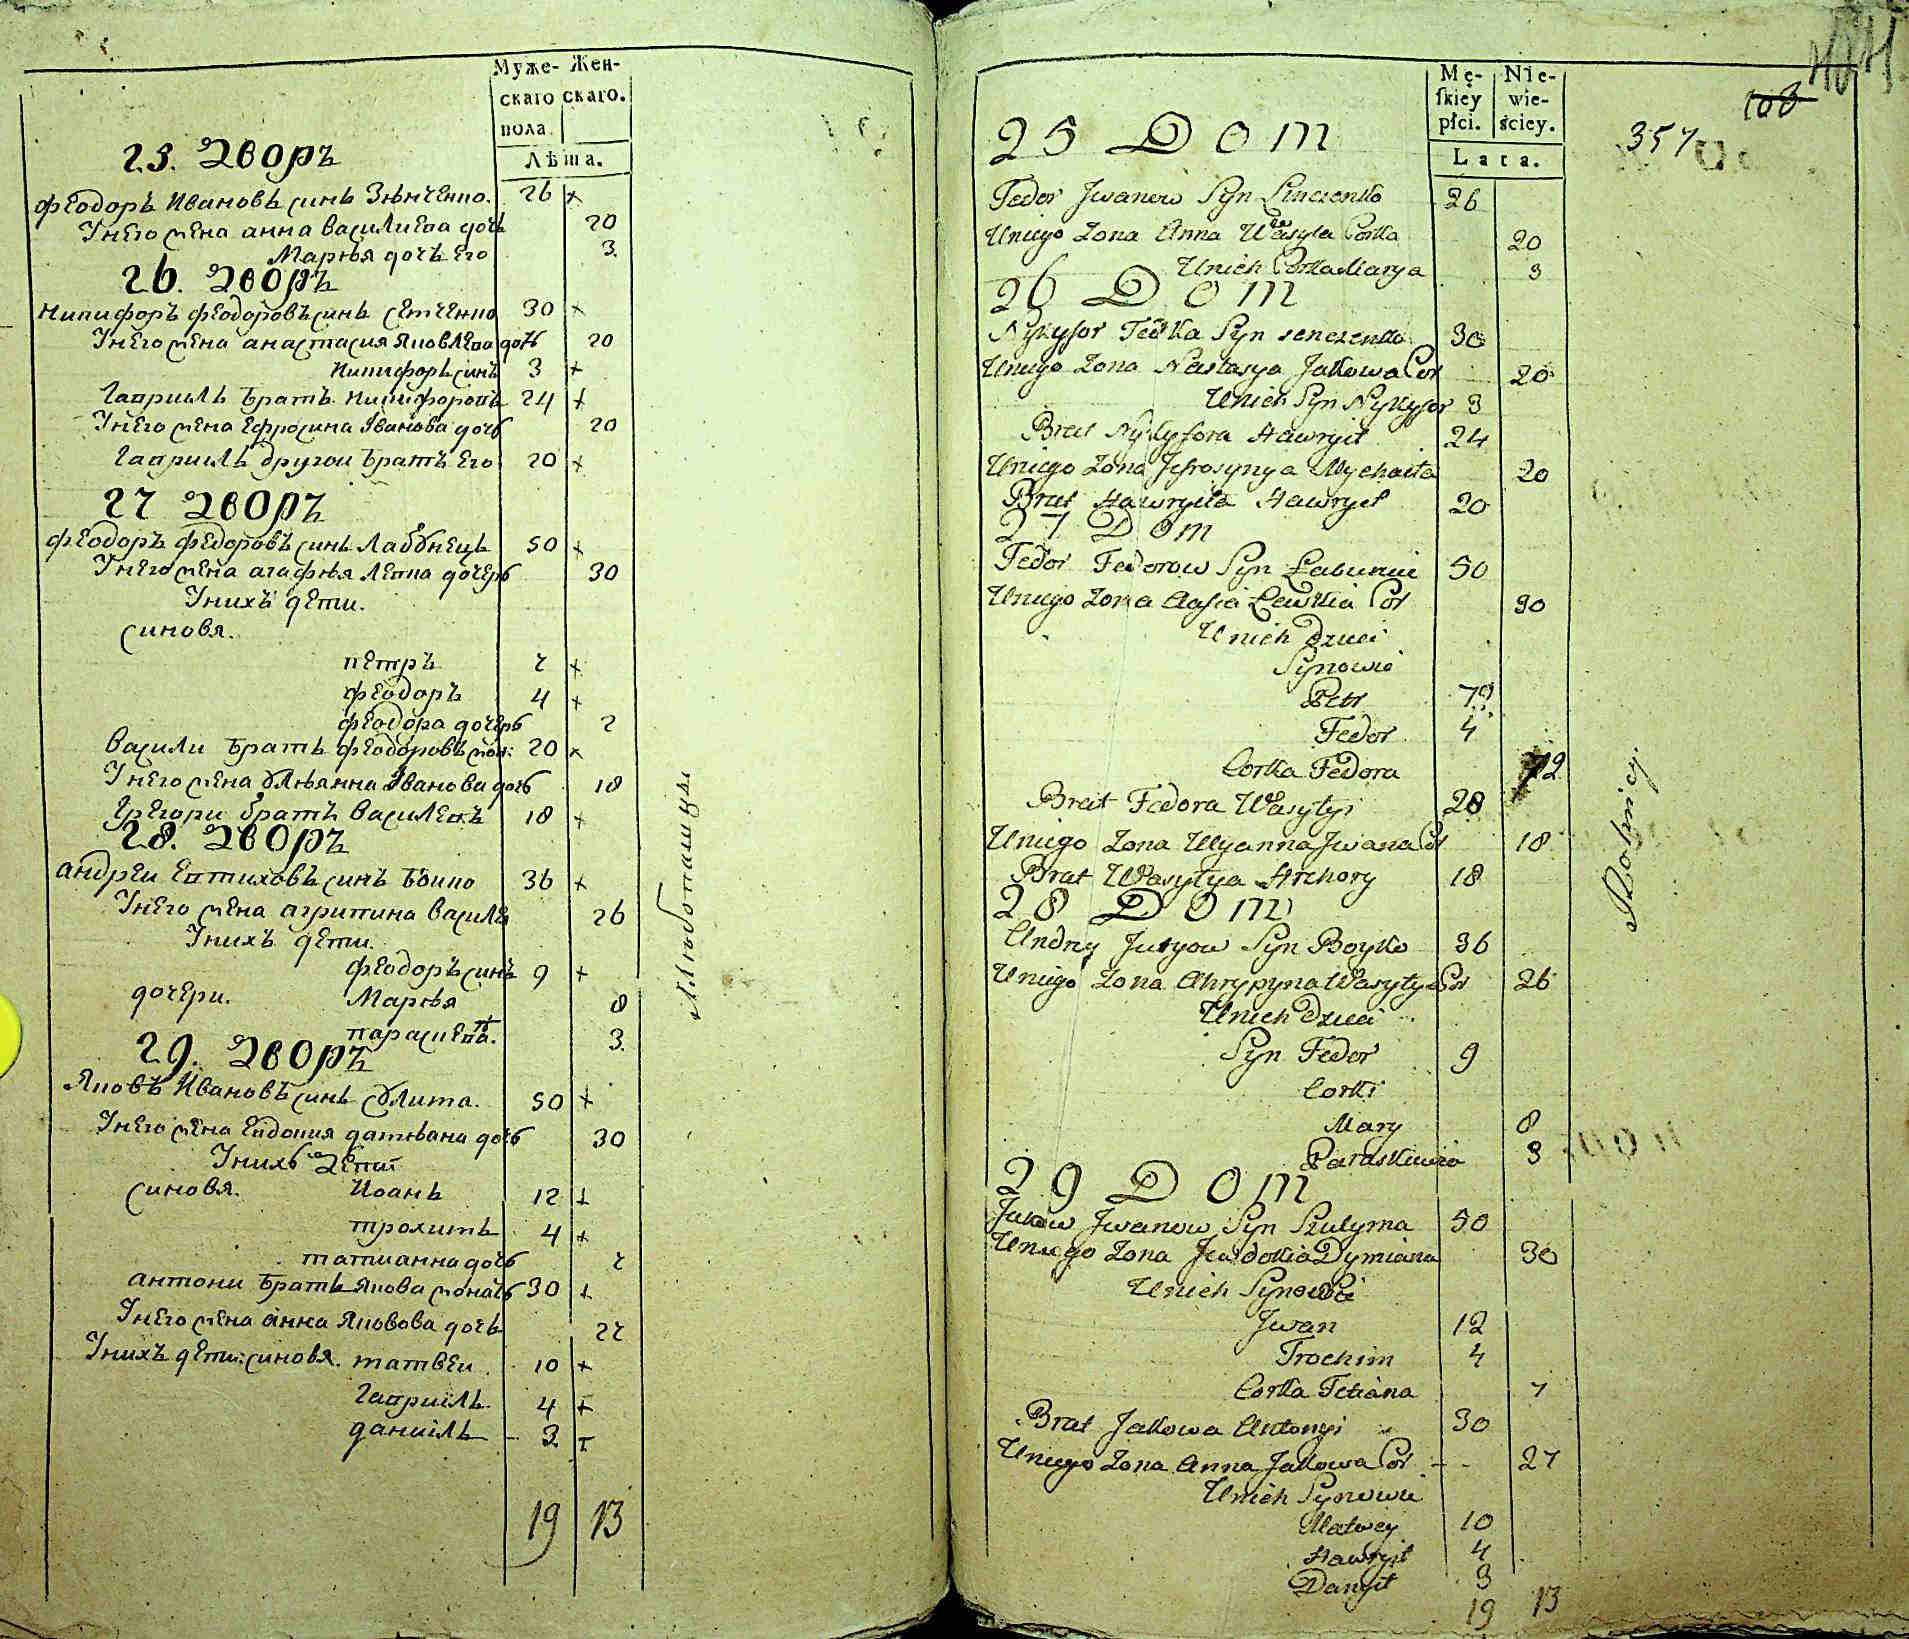 Муже- Жен-
скаго скаго.
пола.
Лѣта.
25. Дворъ
Феодоръ Ивановъ синъ Зѣнченко. 26 +
Унего жена анна василиева дочь 20
Марѣя дочъ его 3.
26. Дворъ
Никифоръ Феодоровъ синъ Сетченко 30 +
Унего жена анастасия Яковлева дочь 20
Никифоръ синъ 3 +
Гавриилъ братъ Никифоровъ 24 +
Унего жена Ефросина Іванова дочь 20
Гавриилъ другои братъ его 20 +
27 Дворъ
Феодоръ Федоровъ синъ Лабунецъ 50 +
Унего жена агафѣя Левка дочерь 30
Унихъ дети.
синовя.
петръ 7 +
феодоръ 4 +
феодора дочерь 2
Васили братъ феодоровъ жон: 20 +
Унего жена Улѣянна Іванова дочь 18
Грегори братъ василевъ 18 +
28. Дворъ
андреи Евтиховъ синъ Боико 36 +
Унего жена агрипина василе 26
Унихъ дети.
феодоръ синъ 9 +
дочери. Марѣя 8
параскева. 3.
29. Дворъ
Яковъ Ивановъ синъ Сулима. 50 +
Унего жена Евдокия дамѣвана дочь 30
Унихъ Дети
синовя. Иоанъ 12 +
трохимъ 4 +
татианна дочь 7
антони братъ Якова жонатъ 30 +
Унего жена анна Яковова дочь 27
Унихъ дети: синовя. матвеи 10 +
Гавриилъ. 4 +
даниилъ 3. +
19 13
хлѣбопашцы
Mę- Nie-
skiey wie-
płci. ściey.
Lata.
104
103
357
25 Dom
Fedor Jwanow Syn Zinczenko 26
Uniego Zona Anna Wasyla Corka 20
Unich Corka Marya 3
26 Dom
Nykyfor Fedka Syn senczenko 30
Uniego Zona Nastasya Jakowa Cor 20
Unich Syn Nykyfor 3
Brat Nykyfora Hawryił 24
Uniego Zona Jefrosynya Mychaiła 20
Brat Hawryła Hawrył 20
27 Dom
Fedor Fedorow Syn Łabuniec 50
Uniego Zona Agfia Lewkia Cor 30
Unich Dzieci
Synowie
Petr 7
Fedor 4
Corka Fedora 2
Brat Fedora Wasylyi 20
Uniego Zona Ulyanna Jwana Cor 18
Brat Wasylya Hrehory 18
28 Dom
Andrey Jutyow Syn Boyko 36
Uniego Zona Ahrypyna Wasyly Cor 26
Unich Dzieci
Syn Fedor 9
Corki
Mary 8
Paraskiewia 3
29 Dom
Jakow Jwanow Syn Szulyma 50
Uniego Zona Jewdokia Dymiana 30
Unich Synowie
Jwan 12
Trochim 4
Corka Tetiana 7
Brat Jakowa Antonyi 30
Uniego Zona Anna Jakowa Cor 27
Unich Synowie
Matwey 10
Hawrył 4
Danył 3
19 13
Rolnicy